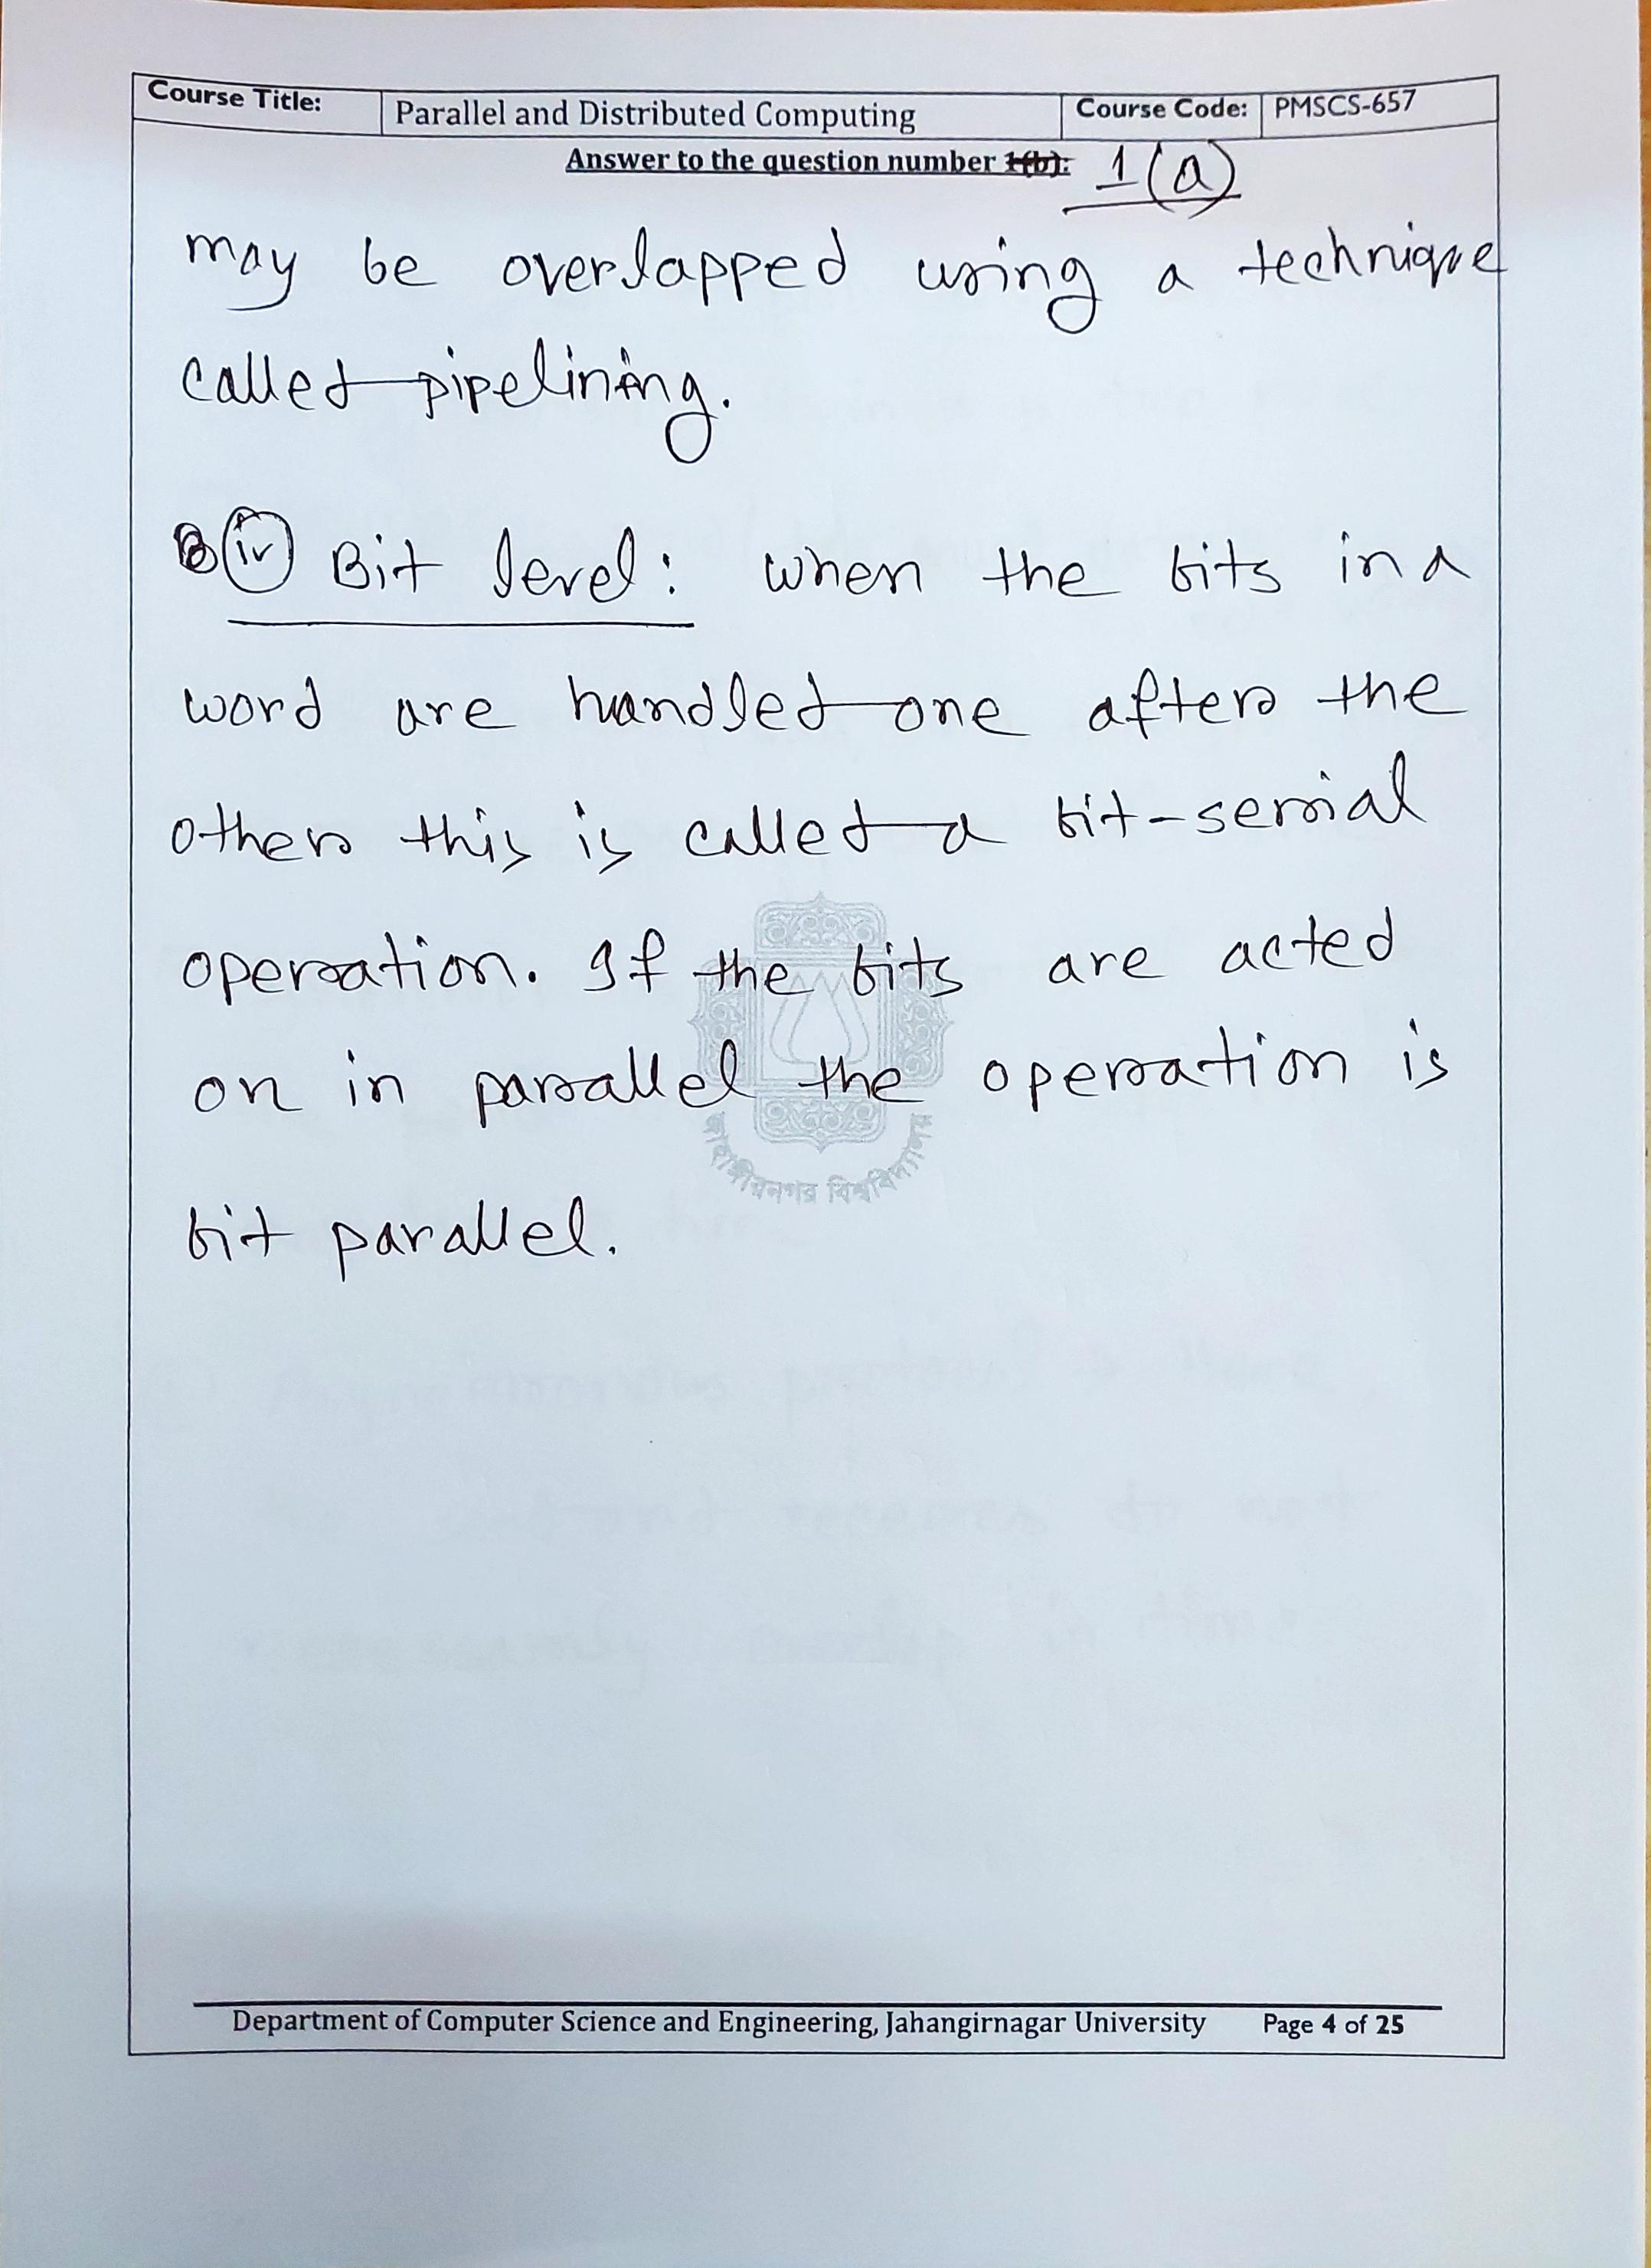 Course Title: Parallel and Distributed Computing Course Code: PMSCS-657
Answer to the question number 1(b): 1(a)
may be overlapped using a technique
called pipelining.
(iv) Bit level: when the bits in a
word are handled one after the
other this is called a bit-serial
operation. If the bits are acted
on in parallel the operation is
জাহাঙ্গীরনগর বিশ্ববিদ্যালয়
bit parallel.
Department of Computer Science and Engineering, Jahangirnagar University Page 4 of 25